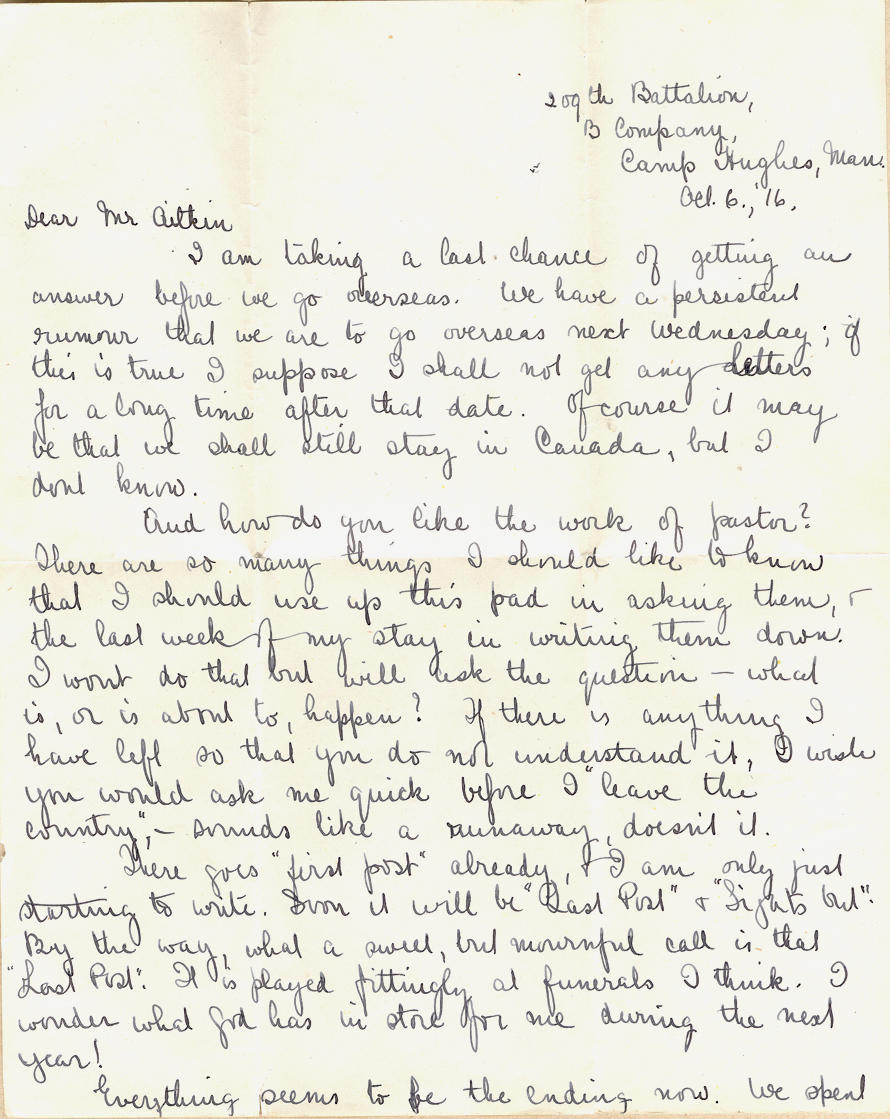 209th Battalion,
B Company,
Camp Hughes, Man.
Oct. 6., '16.
Dear Mr Aitkin
I am taking a last chance of getting an
answer before we go overseas. We have a persistent
rumour that we are to go overseas next Wednesday; if
this is true I suppose I shall not get any letters
for a long time after that date. Of course it may
be that we shall still stay in Canada, but I
dont know.
And how do you like the work of pastor?
There are so many things I should like to know
that I should use up this pad in asking them, &
the last week of my stay in writing them down.
I wont do that but will ask the question – what
is, or is about to, happen? If there is anything I
have left so that you do not understand it, I wish
you would ask me quick before I "leave the
country", – sounds like a runaway, doesn't it.
There goes "first post" already, & I am only just
starting to write. Soon it will be "Last Post" & "Lights Out".
By the way, what a sweet, but mournful call is that
"Last Post". It is played fittingly at funerals I think. I
wonder what God has in store for me during the next
year!
Everything seems to be the ending now. We spent